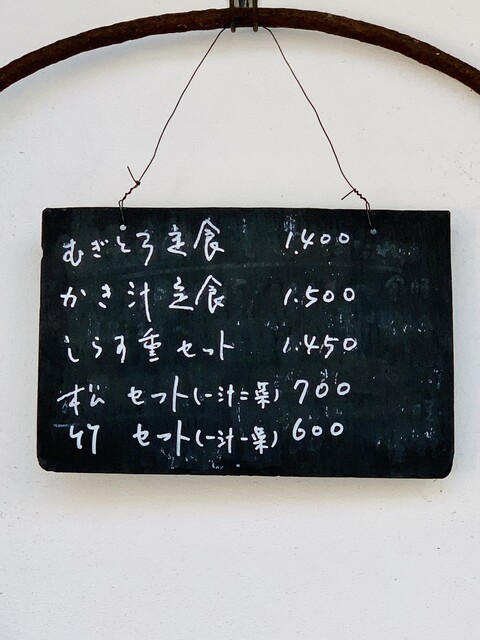 むぎとろ定食 1.400
かき汁定食 1.500
しらす重セット 1.450
松 セット(一汁二菜) 700
竹 セット(一汁一菜) 600